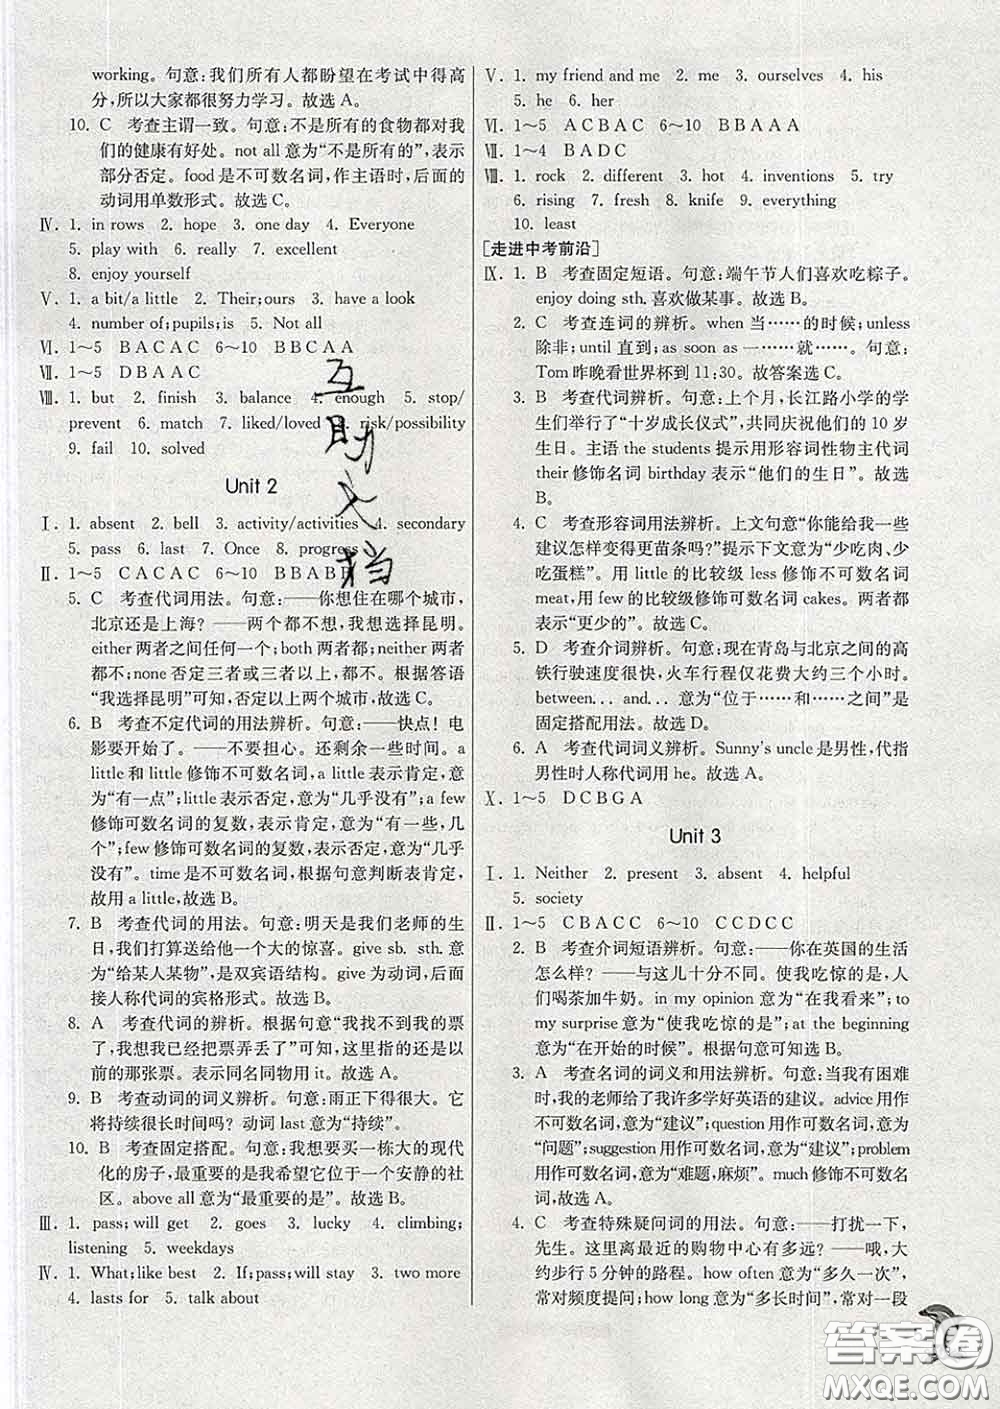 working。句意:我们所有人都盼望在考试中得高
分,所以大家都很努力学习。故选A。
10. C 考查主谓一致。句意:不是所有的食物都对我
们的健康有好处。not all 意为“不是所有的”,表示
部分否定。food是不可数名词,作主语时,后面的
动词用单数形式。故选C。
Ⅳ. 1. in rows 2. hope 3. one day 4. Everyone
5. play with 6. really 7. excellent
8. enjoy yourself
Ⅴ. 1. a bit/a little 2. Their;ours 3. have a look
4. number of;pupils;is 5. Not all
Ⅵ. 1~5 BACAC 6~10 BBCAA
Ⅶ. 1~5 DBAAC
Ⅷ. 1. but 2. finish 3. balance 4. enough 5. stop/
prevent 6. match 7. liked/loved 8. risk/possibility
9. fail 10. solved
Unit 2
Ⅰ. 1. absent 2. bell 3. activity/activities 4. secondary
5. pass 6. last 7. Once 8. progress
Ⅱ. 1~5 CACAC 6~10 BBAB
5. C 考查代词用法。句意:——你想住在哪个城市,
北京还是上海?——两个都不想,我想选择昆明。
either 两者之间任何一个;both 两者都;neither 两者
都不;none否定三者或三者以上,都不。根据答语
“我选择昆明”可知,否定以上两个城市,故选C。
6. B 考查不定代词的用法辨析。句意:——快点!电
影要开始了。——不要担心。还剩余一些时间。a
little 和 little 修饰不可数名词,a little 表示肯定,意
为“有一点”;little表示否定,意为“几乎没有”;a few
修饰可数名词的复数,表示肯定,意为“有一些,几
个”;few修饰可数名词的复数,表示否定,意为“几乎
没有”。time是不可数名词,根据句意判断表肯定,
故用 a little。故选B。
7. B 考查代词的用法。句意:明天是我们老师的生
日,我们打算送给他一个大的惊喜。give sb. sth. 意
为“给某人某物”,是双宾语结构。give为动词,后面
接人称代词的宾格形式。故选B。
8. A 考查代词的辨析。根据句意“我找不到我的票
了,我想我已经把票弄丢了”可知,这里指的还是以
前的那张票。表示同名同物用it。故选A。
9. B 考查动词的词义辨析。句意:雨正下得很大。它
将持续很长时间吗?动词last意为“持续”。
10. B 考查固定搭配。句意:我想要买一栋大的现代
化的房子,最重要的是我希望它位于一个安静的社
区。above all意为“最重要的是”。故选B。
Ⅲ. 1. pass;will get 2. goes 3. lucky 4. climbing;
listening 5. weekdays
Ⅳ. 1. What;like best 2. If;pass;will stay 3. two more
4. lasts for 5. talk about
Ⅴ. 1. my friend and me 2. me 3. ourselves 4. his
5. he 6. her
Ⅵ. 1~5 ACBAC 6~10 BBAAA
Ⅶ. 1~4 BADC
Ⅷ. 1. rock 2. different 3. hot 4. inventions 5. try
6. rising 7. fresh 8. knife 9. everything
10. least
[走进中考前沿]
Ⅸ. 1. B 考查固定短语。句意:端午节人们喜欢吃粽子。
enjoy doing sth.喜欢做某事。故选B。
2. C 考查连词的辨析。when 当……的时候;unless
除非;until 直到;as soon as 一……就……。句意:
Tom昨晚看世界杯到11:30。故答案选C。
3. B 考查代词辨析。句意:上个月,长江路小学的学
生们举行了“十岁成长仪式”,共同庆祝他们的10岁
生日。主语 the students 提示用形容词性物主代词
their修饰名词 birthday 表示“他们的生日”。故选
B。
4. C 考查形容词用法辨析。上文句意“你能给我一些
建议怎样变得更苗条吗?”提示下文意为“少吃肉、少
吃蛋糕”。用 little 的比较级 less 修饰不可数名词
meat,用few的比较级修饰可数名词cakes。两者都
表示“更少的”。故选C。
5. D 考查介词辨析。句意:现在青岛与北京之间的高
铁行驶速度很快,火车行程仅花费大约三个小时。
between...and... 意为“位于……和……之间”是
固定搭配用法。故选D。
6. A 考查代词词义辨析。Sunny's uncle是男性,代指
男性时人称代词用 he。故选A。
Ⅹ. 1~5 DCBGA
Unit 3
Ⅰ. 1. Neither 2. present 3. absent 4. helpful
5. society
Ⅱ. 1~5 CBACC 6~10 CCDCC
2. B 考查介词短语辨析。句意:——你在英国的生活
怎么样?——与这儿十分不同。使我吃惊的是,人
们喝茶加牛奶。in my opinion 意为“在我看来”;to
my surprise意为“使我吃惊的是”;at the beginning
意为“在开始的时候”。根据句意可知选B。
3. A 考查名词的词义和用法辨析。句意:当我有困难
时,我的老师给了我许多学好英语的建议。advice用作
不可数名词,意为“建议”;question用作可数名词,意为
“问题”;suggestion用作可数名词,意为“建议”;problem
用作可数名词,意为“难题,麻烦”。much修饰不可数名
词,故选A。
4. C 考查特殊疑问词的用法。句意:——打扰一下,
先生。这里离最近的购物中心有多远?——哦,大
约步行5分钟的路程。how often 意为“多久一次”,
常对频度提问;how long意为“多长时间”,常对一段
互助文档
答案圈
MXQE.COM